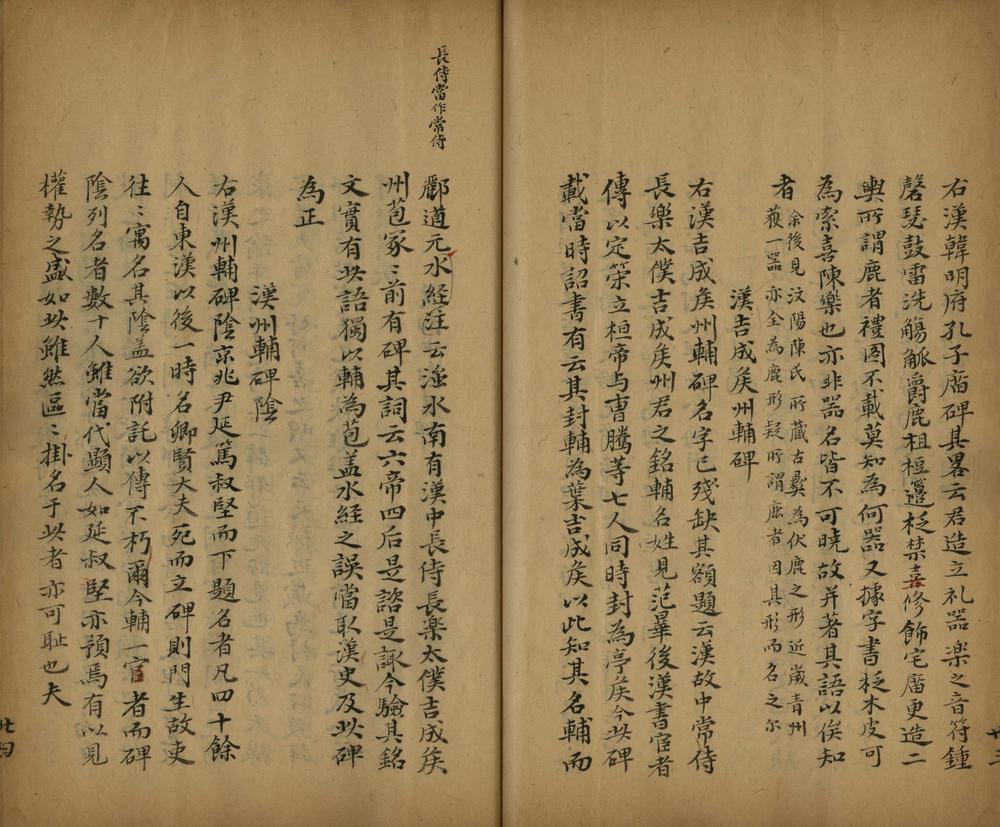 右漢韓明府孔子廟碑其畧云君造立礼器楽之音符鍾
磬瑟鼓雷洗觴觚爵鹿柤梪籩柉禁壴修飾宅廟更造二
輿所謂鹿者禮图不載莫知為何器又據字書柉木皮可
為索喜陳樂也亦非器名皆不可暁故并著其語以俟知
者
余後見汶陽陳氏所藏古彝為伏鹿之形近歲青州
𫉬一器亦全為鹿形疑所謂鹿者因其形而名之尔
漢吉成矦州輔碑
右漢吉成矦州輔碑名字已残缺其額題云漢故中常侍
長樂太僕吉成矦州君之銘輔名姓見范曄後漢書宦者
傳以定策立桓帝与曺騰等七人同時封為亭矦今此碑
載當時詔書有云其封輔為葉吉成矦以此知其名輔而
酈道元水経注云滍水南有漢中長侍長楽太僕吉成矦
州苞冢〻前有碑其詞云六帝四后是諮是諏今驗其銘
文實有此語獨以輔為苞盖水経之誤當㪅漢史及此碑
為正
漢州輔碑陰
右漢州輔碑陰京兆尹延篤叔堅而下題名者凡四十餘
人自東漢以後一時名卿賢大夫死而立碑則門生故吏
往〻寓名其陰盖欲附託以傳不朽爾今輔一宦者而碑
陰列名者數十人雖當代顯人如延叔堅亦預焉有以見
權勢之盛如此雖然區〻掛名于此者亦可耻也夫
長侍當作常侍
廿三
廿四